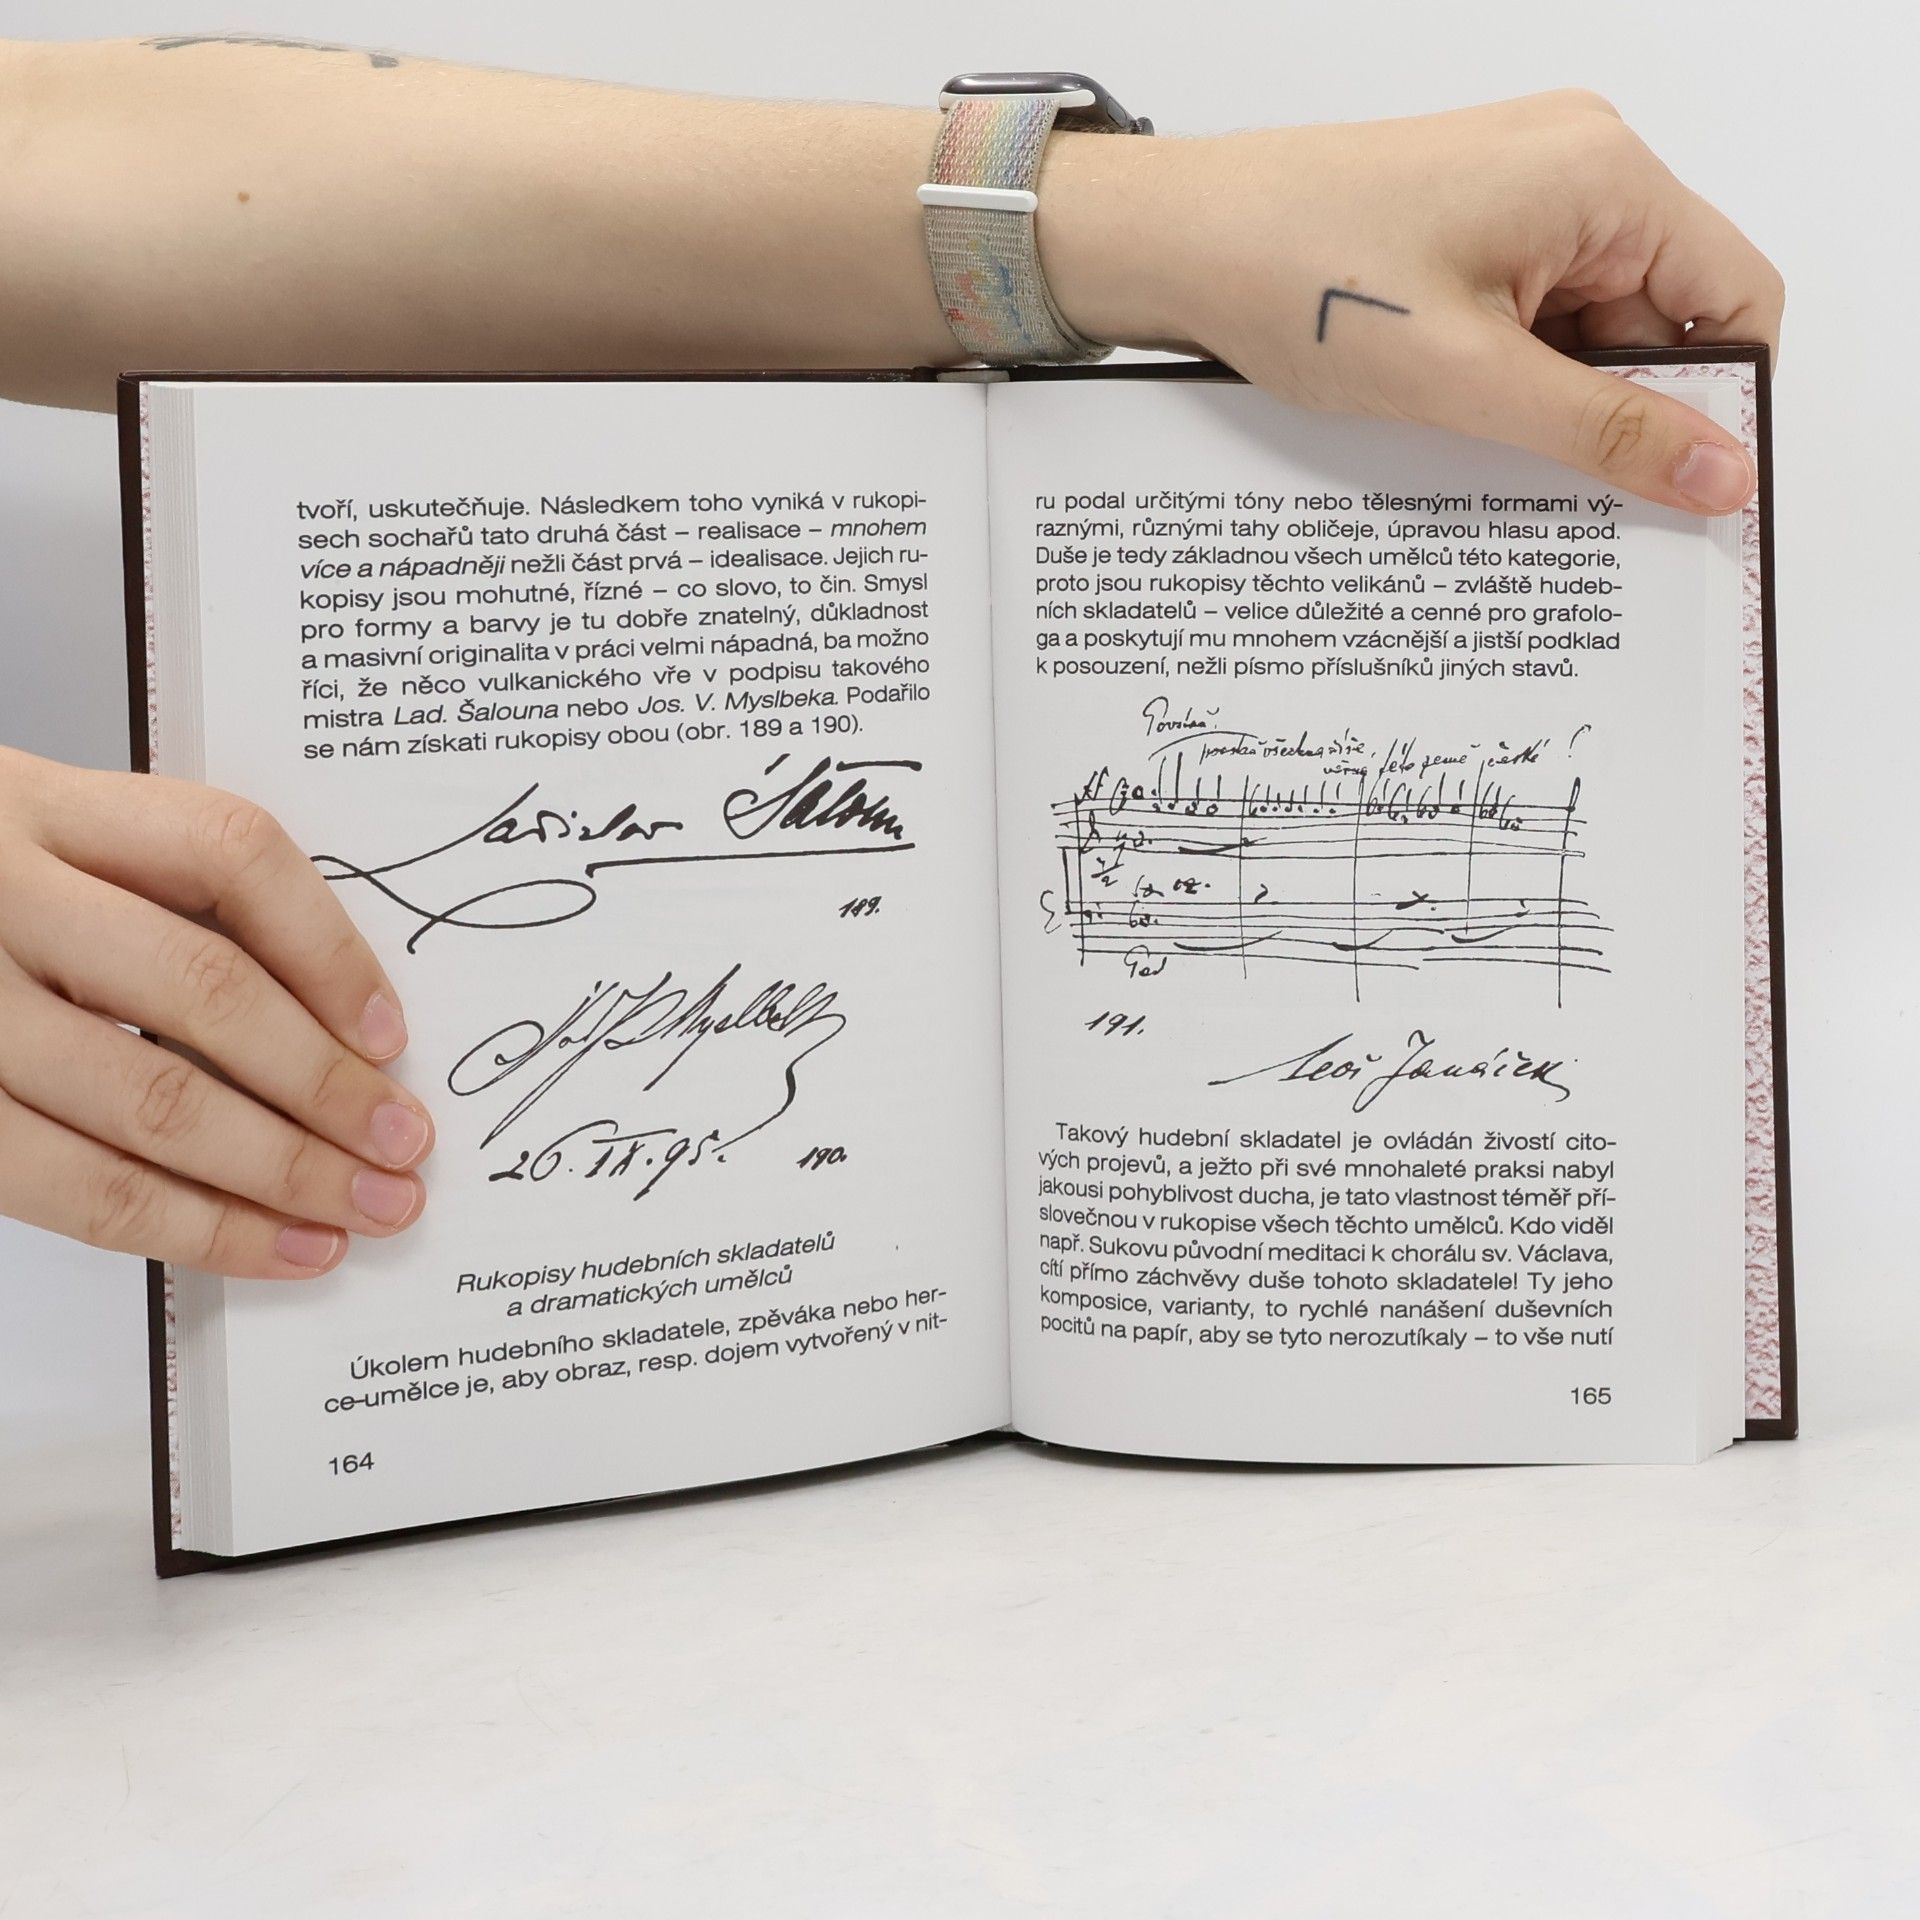 tvoří, uskutečňuje. Následkem toho vyniká v rukopi-
sech sochařů tato druhá část – realisace – mnohem
více a nápadněji nežli část prvá – idealisace. Jejich ru-
kopisy jsou mohutné, řízné – co slovo, to čin. Smysl
pro formy a barvy je tu dobře znatelný, důkladnost
a masivní originalita v práci velmi nápadná, ba možno
říci, že něco vulkanického vře v podpisu takového
mistra Lad. Šalouna nebo Jos. V. Myslbeka. Podařilo
se nám získati rukopisy obou (obr. 189 a 190).
Ladislav Šaloun
189.
Jos V Myslbek
26. IX. 95.
190.
Rukopisy hudebních skladatelů
a dramatických umělců
Úkolem hudebního skladatele, zpěváka nebo her-
ce-umělce je, aby obraz, resp. dojem vytvořený v nit-
164
ru podal určitými tóny nebo tělesnými formami vý-
raznými, různými tahy obličeje, úpravou hlasu apod.
Duše je tedy základnou všech umělců této kategorie,
proto jsou rukopisy těchto velikánů – zvláště hudeb-
ních skladatelů – velice důležité a cenné pro grafolo-
ga a poskytují mu mnohem vzácnější a jistší podklad
k posouzení, nežli písmo příslušníků jiných stavů.
této země české!
191.
Leoš Janáček
Takový hudební skladatel je ovládán živostí cito-
vých projevů, a ježto při své mnohaleté praksi nabyl
jakousi pohyblivost ducha, je tato vlastnost téměř pří-
slovečnou v rukopise všech těchto umělců. Kdo viděl
např. Sukovu původní meditaci k chorálu sv. Václava,
cítí přímo záchvěvy duše tohoto skladatele! Ty jeho
komposice, varianty, to rychlé nanášení duševních
pocitů na papír, aby se tyto nerozutíkaly – to vše nutí
165